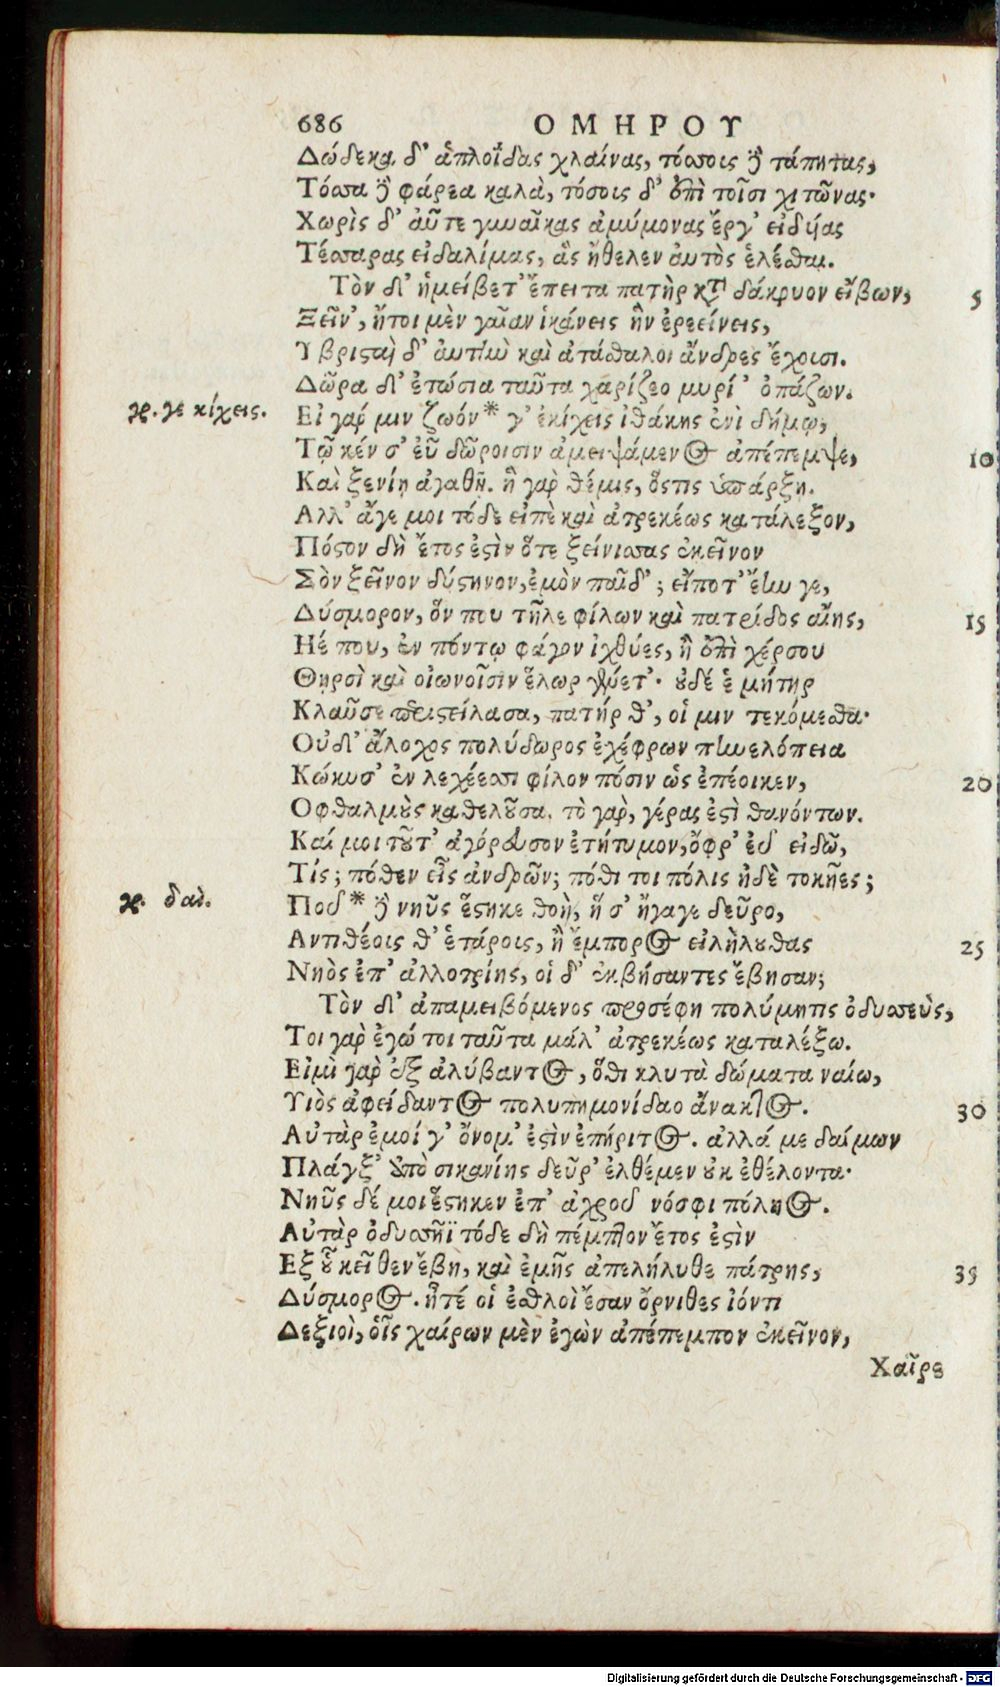 686 ΟΜΗΡΟΥ
Δώδεκα δ' ἁπλοΐδας χλαίνας, τόσσοις ἢ τάπητας,
Τόσσα ἢ φάρεα καλὰ, τόσοις δ' ἐπὶ τοῖσι χιτῶνας·
Χωρὶς δ' αὖτε γυναῖκας ἀμύμονας ἔργ' εἰδυίας
Τέσσαρας εἰδαλίμας, ἃς ἤθελεν αὐτὸς ἑλέσθαι.
Τὸν δ' ἠμείβετ' ἔπειτα πατὴρ κατὰ δάκρυον εἴβων, 5
Ξεῖν', ἤτοι μὲν γαῖαν ἱκάνεις ἣν ἐρεείνεις,
Υβρισταὶ δ' αὐτὴν καὶ ἀτάσθαλοι ἄνδρες ἔχοισι.
Δῶρα δ' ἐτώσια ταῦτα χαρίζεο μυρί' ὀπάζων.
γρ. γε κίχεις. Εἰ γάρ μιν ζωόν* γ' ἐκίχεις ἰθάκης ἐνὶ δήμῳ,
Τῷ κέν σ' εὖ δῶροισιν ἀμειψάμενος ἀπέπεμψε, 10
Καὶ ξενίῃ ἀγαθῇ. ἣ γὰρ θέμις, ὅστις ὑπάρξῃ.
Αλλ' ἄγε μοι τόδε εἰπὲ καὶ ἀτρεκέως κατάλεξον,
Πόστον δὴ ἔτος ἐστὶν ὅτε ξείνισσας ἐκεῖνον
Σὸν ξεῖνον δύστηνον, ἐμὸν παῖδ'; εἴποτ' ἔην γε,
Δύσμορον, ὅν που τῆλε φίλων καὶ πατρίδος αἴης, 15
Ηέ που, ἐν πόντῳ φάγον ἰχθύες, ἢ ἐπὶ χέρσου
Θηρσὶ καὶ οἰωνοῖσιν ἕλωρ γένετ'· οὐδέ ἑ μήτηρ
Κλαῦσε περιστείλασα, πατήρ θ', οἵ μιν τεκόμεσθα·
Οὐδ' ἄλοχος πολύδωρος ἐχέφρων πηνελόπεια
Κώκυσ' ἐν λεχέεσσι φίλον πόσιν ὡς ἐπέοικεν, 20
Οφθαλμοὺς καθελοῦσα. τὸ γὰρ, γέρας ἐστὶ θανόντων.
Καί μοι τοῦτ' ἀγόρευσον ἐτήτυμον, ὄφρ' εὖ εἰδῶ,
Τίς; πόθεν εἶς ἀνδρῶν; πόθι τοι πόλις ἠδὲ τοκῆες;
γρ. δαὶ. Ποῦ* ἢ νηῦς ἕστηκε θοὴ, ἥ σ' ἤγαγε δεῦρο,
Αντιθέοις θ' ἑτάροις, ἢ ἔμπορος εἰλήλουθας 25
Νηὸς ἐπ' ἀλλοτρίης, οἱ δ' ἐκβήσαντες ἔβησαν;
Τὸν δ' ἀπαμειβόμενος προσέφη πολύμητις ὀδυσσεὺς,
Τοι γὰρ ἐγώ τοι ταῦτα μάλ' ἀτρεκέως καταλέξω.
Εἰμὶ γὰρ ἐξ ἀλύβαντος, ὅθι κλυτὰ δώματα ναίω,
Υιὸς ἀφείδαντος πολυπημονίδαο ἄνακτος. 30
Αὐτὰρ ἐμοί γ' ὄνομ' ἐστὶν ἐπήριτος. ἀλλά με δαίμων
Πλάγξ' ἀπὸ σικανίης δεῦρ' ἐλθέμεν οὐκ ἐθέλοντα·
Νηῦς δέ μοι ἕστηκεν ἐπ' ἀγροῦ νόσφι πόληος.
Αὐτὰρ ὀδυσσῆϊ τόδε δὴ πέμπτον ἔτος ἐστὶν
Εξ οὗ κεῖθεν ἔβη, καὶ ἐμῆς ἀπελήλυθε πάτρης, 35
Δύσμορος. ἦτέ οἱ ἐσθλοὶ ἔσαν ὄρνιθες ἰόντι
Δεξιοὶ, οἷς χαίρων μὲν ἐγὼν ἀπέπεμπον ἐκεῖνον,
Χαῖρε
Digitalisierung gefördert durch die Deutsche Forschungsgemeinschaft - DFG